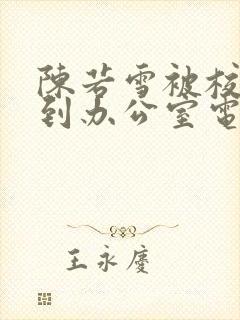 陳若雪被校
到办公室電
王永慶